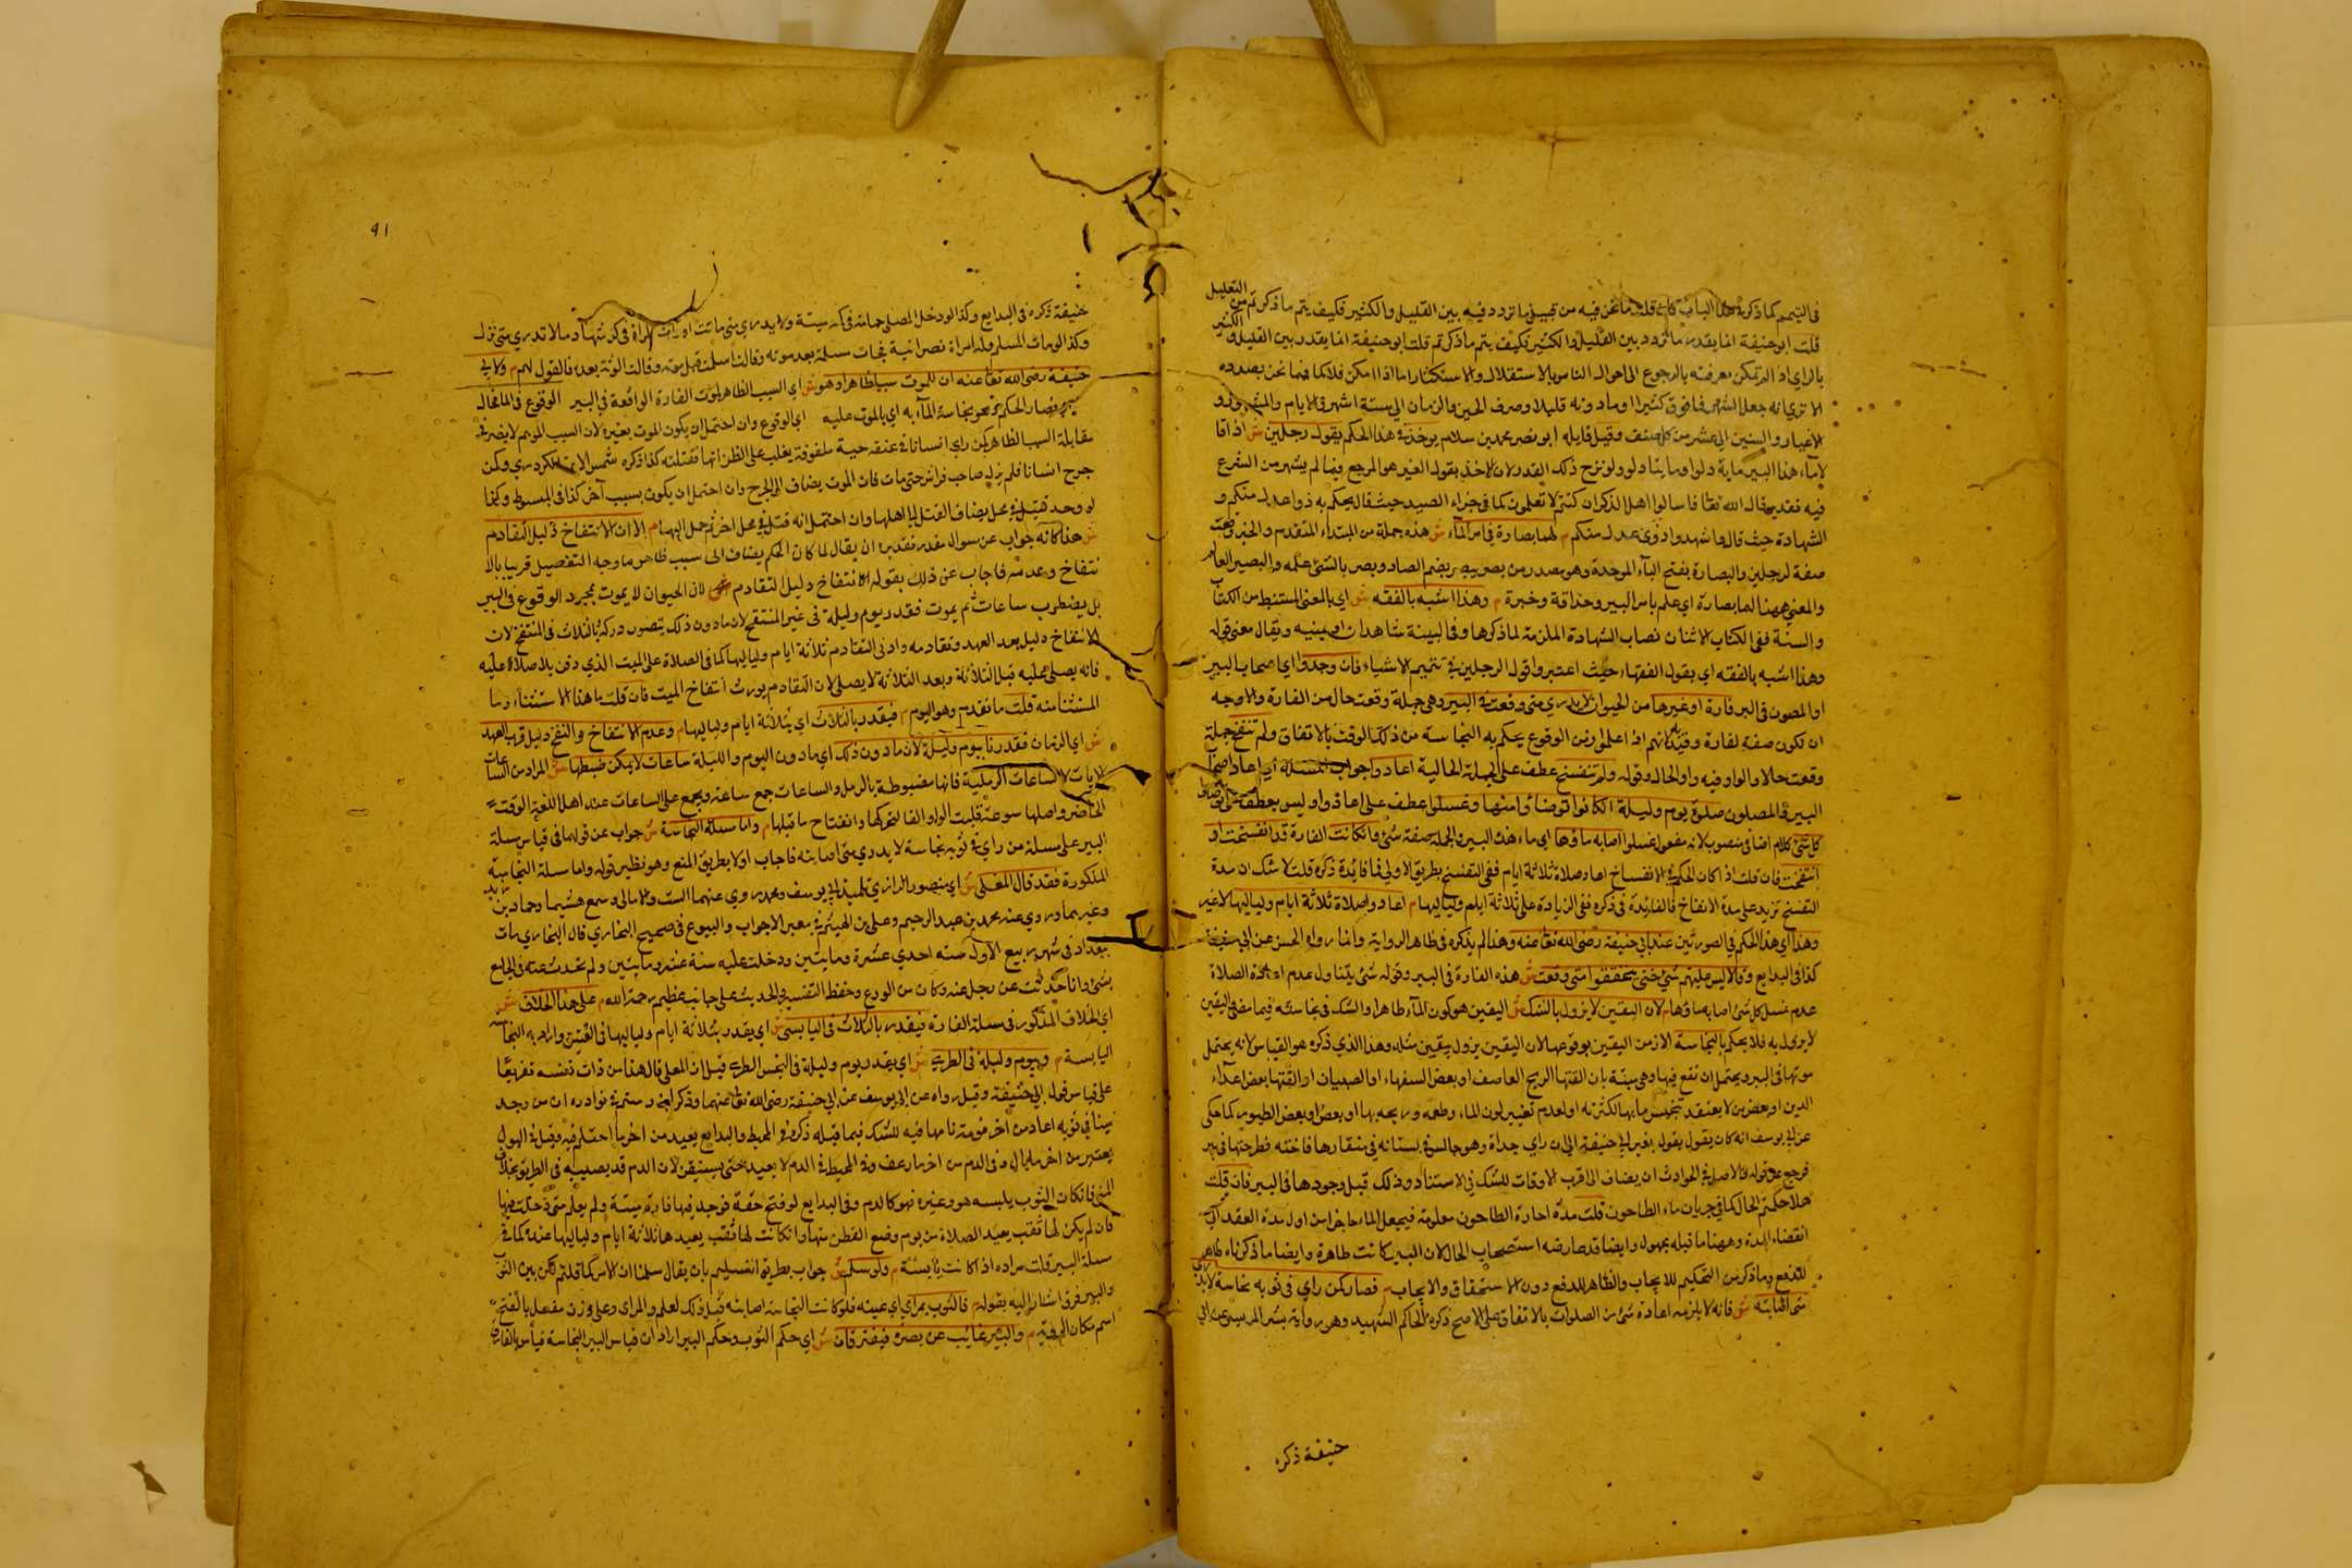 في التيمم كما ذكره هذا الباب قلت ما نحن فيه من قبيل ما تردد فيه بين القليل والكثير فكيف يتم ما ذكرتم من التعليل
قلت ابو حنيفة انما يقدر ما تردد بين القليل والكثير فكيف يتم ما ذكرتم قلت ابو حنيفة انما يقدر بين القليل والكثير
بالراي اذا لم تمكن معرفته بالرجوع الى احوال الناس بالاستقلال والاستكثار اما اذا امكن فلا كما فيما نحن بصدده
الا ترى انه جعل الشهر فما فوق كثيرا وما دونه قليلا وصرف الحين والزمان الى ستة اشهر في الايام والشهور
والسنين الى عشر من كل صنف وقيل قايله ابو نصر محمد بن سلام يوخذ في هذا الحكم بقول رجلين ش اذا قا
لا ماء هذا البير ماية دلو او مايتا دلو ولو نزح ذلك القدر لان الاخذ بقول الغير هو المرجع فيما لم يشهر من الشرع
فيه تقدير قال الله تعا فاسالوا اهل الذكر ان كنتم لا تعلمون كما في جزاء الصيد حيث قال يحكم به ذوا عدل منكم و
الشهادة حيث قال واشهدوا ذوي عدل منكم م لهما بصارة في امر الماء ش هذه جملة من المبتداء المتقدم والخبر وقعت
صفة لرجلين والبصارة بفتح الباء الموحدة وهو مصدر من بصر يبصر بضم الصاد وبصر بالشيء علمه والبصير العالم
والمعنى ههنا لهما بصارة اي علم بامر البير وحذاقة وخبرة م وهذا اشبه بالفقه ش اي بالمعنى المستنبط من الكتاب
والسنة ففي الكتاب الاثنان نصاب الشهادة الملزمة لما ذكرها وفي البينة شاهدان او يمينه ويقال معنى قوله
وهذا اشبه بالفقه اي بقول الفقهاء حيث اعتبروا قول الرجلين في تتميم الاشياء فان وجدوا اي اصحاب البير
او المصون في البر فارة او غيرها من الحيوان لا يدري متى وقعت في البير وهي جملة وقعت حال من الفارة والاوجه
ان تكون صفة لفارة وقيد بانهم اذا علموا زمن الوقوع يحكم به النجاسة من ذلك الوقت بالاتفاق ولم تنفخ جملة
وقعت حالا والواو فيه واو الحال وقوله ولم تنفسخ عطف على الجملة الحالية اعادوا جواب المسئلة اي اعاد اصحاب
البير والمصلون صلوة يوم وليلة ان كانوا توضأوا منها وغسلوا عطف على اعادوا وليس بعطف على توضأوا
كل شيء كلام اضافي منصوب لانه مفعول غسلوا اصابه ماؤها اي ماء هذه البير والجملة صفة شيء وان كانت الفارة قد انفسخت او
انتفخت فان قلت اذا كان الحكم في الانفساخ اعاد صلاة ثلاثة ايام ففي التفسخ بطريق الاولى فما فايدة ذكره قلت لا شك ان مدة
التفسخ تزيد على مدة الانتفاخ فالفايدة في ذكره نفي الزيادة على ثلاثة ايام ولياليها م اعادوا صلاة ثلاثة ايام ولياليها لا غير
وهذا اي هذا الحكم في الصورتين عند ابي حنيفة رضي الله تعا عنه وهذا لم يذكره في ظاهر الرواية وانما رواه الحسن عن ابي حنيفة
كذا في البدايع وقالا ليس عليهم شيء حتى يتحققوا متى وقعت ش هذه الفارة في البير وقوله شيء يتناول عدم اعادة الصلاة
عدم غسل كل شيء اصابه ماؤها م لان اليقين لا يزول بالشك ش اليقين هو كون الماء طاهرا والشك في نجاسته فيما مضى واليقين
لا يزول به فلا يحكم بالنجاسة الا زمن اليقين بوقوعها لان اليقين يزول بيقين مثله وهذا الذي ذكره هو القياس لانه يحتمل
موتها في البير ويحتمل ان تقع فيها وهي ميتة بان القتها الريح العاصف او بعض السفهاء او الصبيان او القتها بعض اعداء
الدين او بعض من لا يعتقد تنجس مايها لكثرته او لعدم تغيير لون الماء وطعمه وريحه بها او بعض الطيور كما حكى
عن ابي يوسف انه كان يقول بقول ابي حنيفة الى ان راى حداة وهو جالس في بستانه في منقارها فاختة فطرحتها في بير
فرجع عن قوله والاصل في الحوادث ان يضاف الى اقرب الاوقات للشك في الاستناد وذلك قبل وجودها في البير فان قلت
هلا حكم الحال كما في جريان ماء الطاحون قلت مدة اجارة الطاحون معلومة فيجعل الماء جاريا من اول مدة العقد الى
انقضاء المدة وههنا ما قبله مجهول وايضا قد عارضه استصحاب الحال لان البير كانت طاهرة وايضا ما ذكرناه ظاهر
للدفع وما ذكر من التحكيم للايجاب والظاهر للدفع دون الاستحقاق والايجاب م فصار كمن راى في ثوبه نجاسة لا يدري
متى اصابته ش فانه لا يلزمه اعادة شيء من الصلوات بالاتفاق على الاصح ذكره الحاكم الشهيد وهو رواية بشر المريسي عن ابي
حنيفة ذكره
٩١
حنيفة ذكره في البدايع وكذا لو دخل المصلي حمامة في كمه ميتة ولا يدري متى ماتت او رات المراة في كرسفها دما لا تدري متى نزل
وكذا لو مات المسلم وله امراة نصرانية فجات مسلمة بعد موته وقالت اسلمت قبل موته وقالت الورثة بعده فالقول لهم م ولابي
حنيفة رضي الله تعا عنه ان للموت سببا ظاهرا وهو ش اي السبب الظاهر لموت الفارة الواقعة في البير الوقوع في الماء فحال
فصار الحكم نحو نجاسة الماء به اي بالموت عليه اي الوقوع وان احتمل ان يكون الموت بغيره لان السبب الموهوم لا يضر في
مقابلة السبب الظاهر كمن راى انسانا في عنقه حية ملفوفة يغلب على الظن انها قتلته كذا ذكره شمس الايمة الكردري وكمن
جرح انسانا فلم يزل صاحب فراش حتى مات فان الموت يضاف الى الجرح وان احتمل ان يكون بسبب آخر كذا في المبسوط وكذا
لو وجد قتيل في محل يضاف القتل الى اهلها وان احتمل انه قتل في محل آخر ثم حمل اليها م الا ان الانتفاخ دليل التقادم
ش هذا كانه جواب عن سوال مقدر تقديره ان يقال لما كان الحكم يضاف الى سبب ظاهر ما وجه التفصيل قريبا بالا
نتفاخ وعدمه فاجاب عن ذلك بقوله الانتفاخ دليل التقادم ش لان الحيوان لا يموت بمجرد الوقوع في البير
بل يضطرب ساعات ثم يموت فقدر يوم وليلة في غير المنتفخ لان ما دون ذلك يتصور دركه بالثلاث في المنتفخ لان
الانتفاخ دليل بعد العهد وتقادمه وادنى التقادم ثلاثة ايام ولياليها كما في الصلاة على الميت الذي دفن بلا صلاة عليه
فانه يصلى عليه قبل الثلاثة وبعد الثلاثة لا يصلى لان التقادم يورث انتفاخ الميت فان قلت ما هذا الاستثناء وما
المستثنا منه قلت ما تقدم وهو اليوم م فيقدر بالثلاث اي بثلاثة ايام ولياليها م وعدم الانتفاخ والتفسخ دليل قرب العهد
ش اي الزمان فقدرنا بيوم وليلة لان ما دون ذلك اي ما دون اليوم والليلة ساعات لا يمكن ضبطها ش المراد من الساعات
الساعات الرملية فانها مضبوطة بالرمل والساعات جمع ساعة ويجمع على الساعات عند اهل اللغة الوقت
الحاضر واصلها سوعة قلبت الواو الفا لتحركها وانفتاح ما قبلها م واما مسئلة النجاسة ش جواب عن قولهما في قياس مسئلة
البير على مسئلة من راى في ثوبه نجاسة لا يدري متى اصابته فاجاب اولا بطريق المنع وهو نظير قوله واما مسئلة النجاسة
المذكورة فقد قال المعلى ش اي منصور الرازي تلميذ ابي يوسف ومحمد روى عنهما الست والامالي وسمع هشيما وحماد بن زيد
وغيرهما وروى عنه محمد بن عبد الرحيم وعلي بن الهيثم في معبر الاجواب والبيوع في صحيح البخاري قال البخاري مات
ببغداد في شهر ربيع الاول سنه احدى عشرة ومايتين ودخلت عليه سنة عشر ومايتين ولم تحدث عنه في الجامع
بشيء وانا حدثت عن رجل عنه وكان من الورع وحفظ التفسير والحديث على جانب عظيم رحمة الله م على هذا الخلاف ش
اي الخلاف المذكور في مسئلة الفارة فيقدر بالثلاث في اليابس ش اي يقدر بثلاثة ايام ولياليها في العتيق واراد به النجاسة
اليابسة م وبيوم وليلة في الطري ش اي يقدر بيوم وليلة في النجس الطري قيل ان المعلى قال هذا من ذات نفسه تفريعا
على قياس قول ابي حنيفة وقيل رواه عن ابي يوسف عن ابي حنيفة رضي الله تعا عنهما وذكر ابن رستم في نوادره ان من وجد
منيا في ثوبه اعاد من آخر نومة نامها فيه للشك فيما قبله ذكره في المحيط والبدايع يعيد من آخر ما احتلم فيه وقيل في البول
يعتبر من آخر ما بال وفي الدم من آخر ما رعف وفي المحيط في الدم لا يعيد حتى يستيقن لان الدم قد يصيبه في الطريق بخلاف
المني فان كان الثوب يلبسه هو وغيره فهو كالدم وفي البدايع لو فتح جبة فوجد فيها فارة ميتة ولم يعلم متى دخلت فيها
فان لم يكن لها ثقب يعيد الصلاة من يوم وضع القطن فيها وان كانت لها ثقب يعيدها ثلاثة ايام ولياليها عنده كما في
مسئلة البير قلت مراده اذا كانت يابسة م ولو سلم ش جواب بطريق التسليم بان يقال سلمنا ان الامر كما قلتم لكن بين الثوب
والبير فرق اشار اليه بقوله م فالثوب بمراى اي عينه فلو كانت النجاسة اصابته قبل ذلك لعلم والمراى وعلى وزن مفعل بالفتح
اسم مكان الروية م والبير غائب عن بصره فيفترقان ش اي حكم الثوب وحكم البير اراد ان قياس البير النجاسة قياس بالفارق